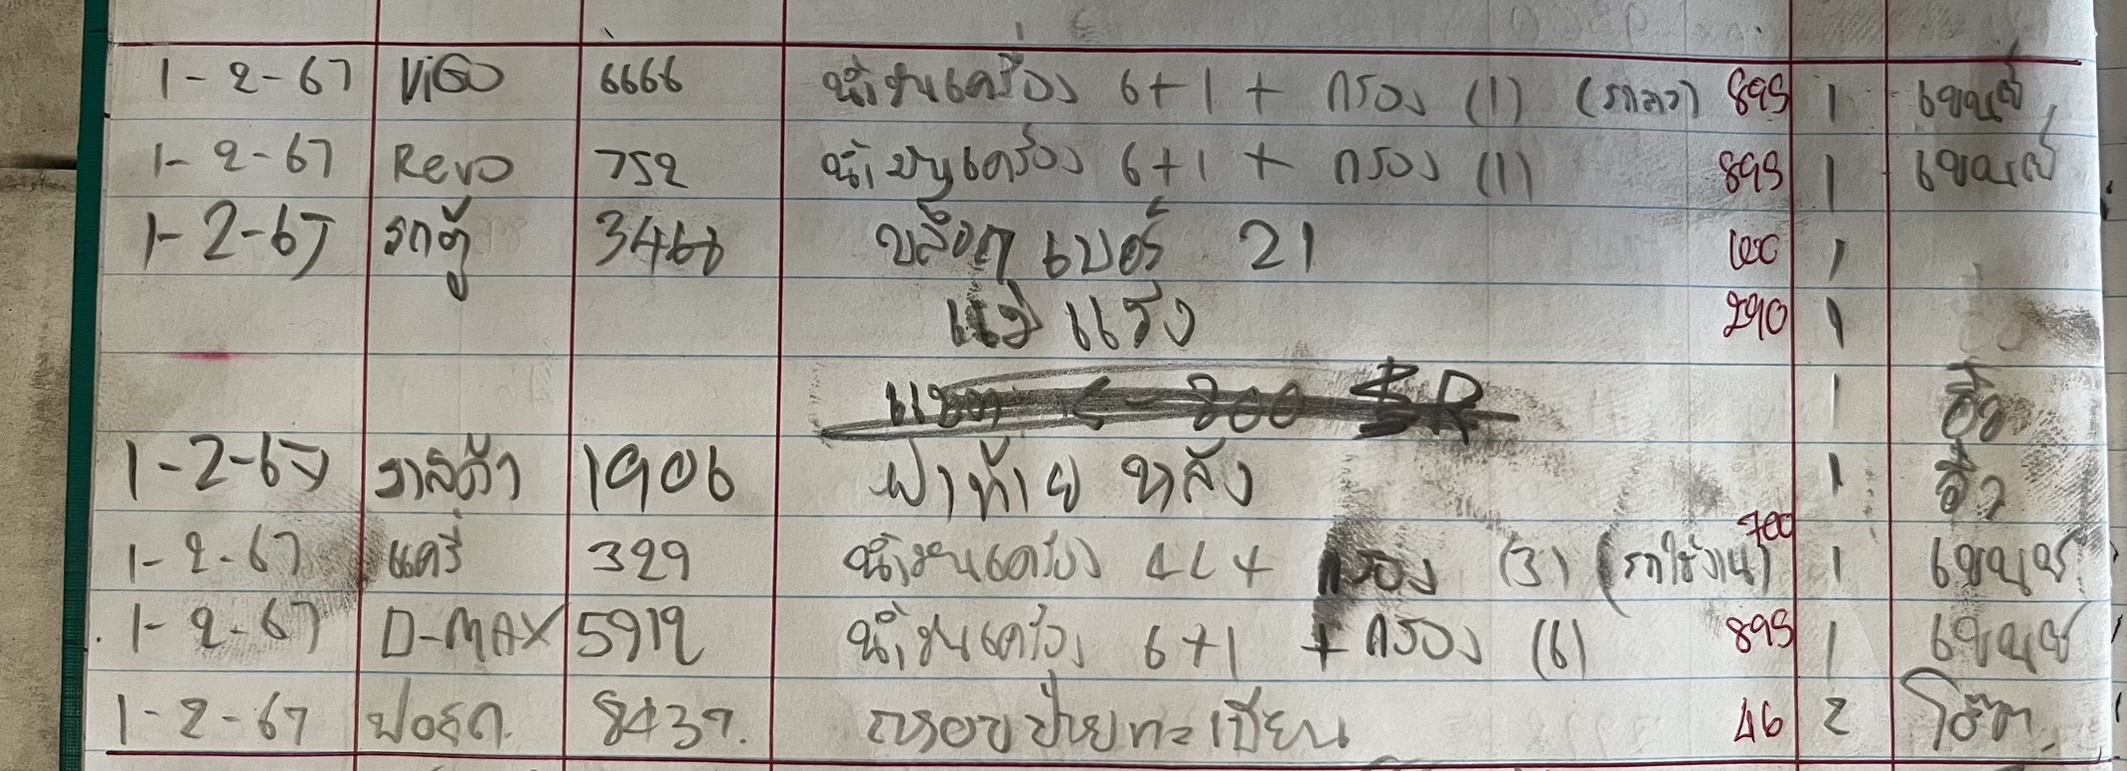 1-2-67 ViGO 6666 น้ำมันเครื่อง 6+1 + กรอง (1) (รถลาว) 895 1
1-2-67 Revo 752 น้ำมันเครื่อง 6+1 + กรอง (1) 895 1
1-2-67 รถตู้ 3466 บล็อก เบอร์ 21 100 1
แม่แรง 290 1
1
1-2-67 1906 ฝาท้าย หลัง 1
1-2-67 แครี่ 329 น้ำมันเครื่อง 4L + กรอง (3) (รถใช้งาน) 700 1
1-2-67 D-MAX 5912 น้ำมันเครื่อง 6+1 + กรอง (6) 895 1
1-2-67 ฟอร์ด 8437. กรอบป้ายทะเบียน 46 2